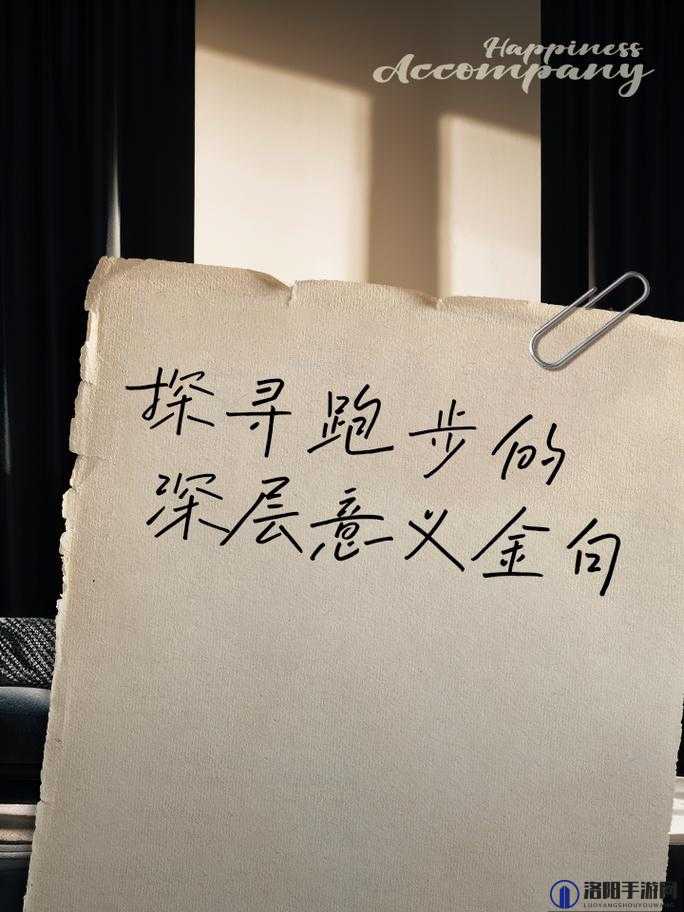 Happiness
Accompany
探寻跑步的
深层意义金句
洛阳手游网
LUOYANGSHOUYOUWANG